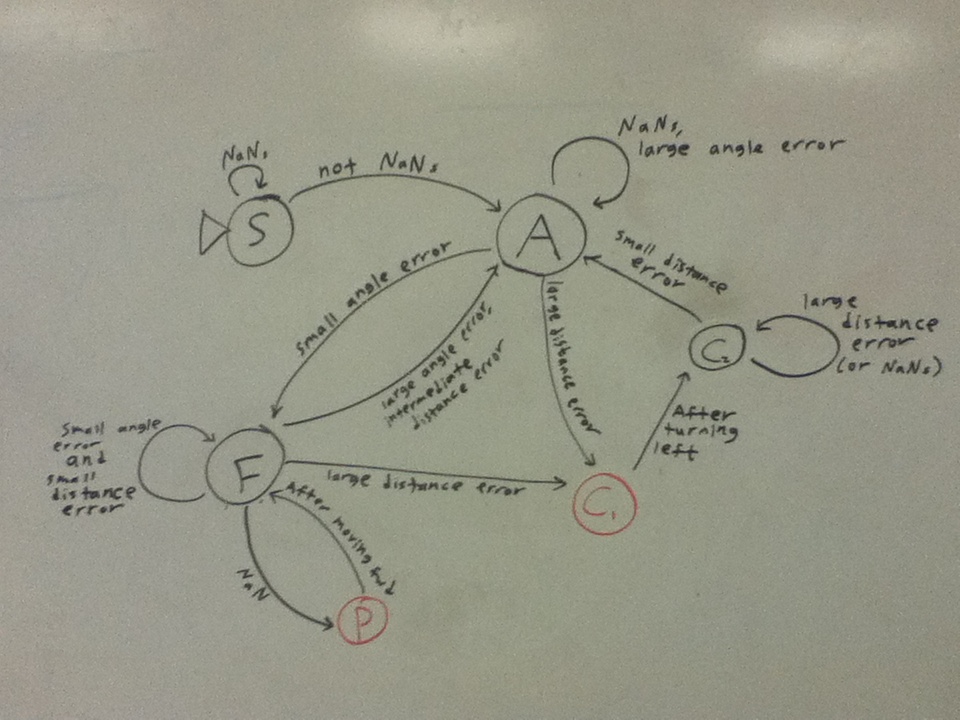 NaNs
not NaNs
S
NaNs,
large angle error
A
small distance
error
C₂
large
distance
error
(or NaNs)
small angle error
large angle error,
intermediate
distance error
large distance error
After
turning
left
Small angle
error
and
small
distance
error
F
large distance error
C₁
After moving fwd
NaN
P